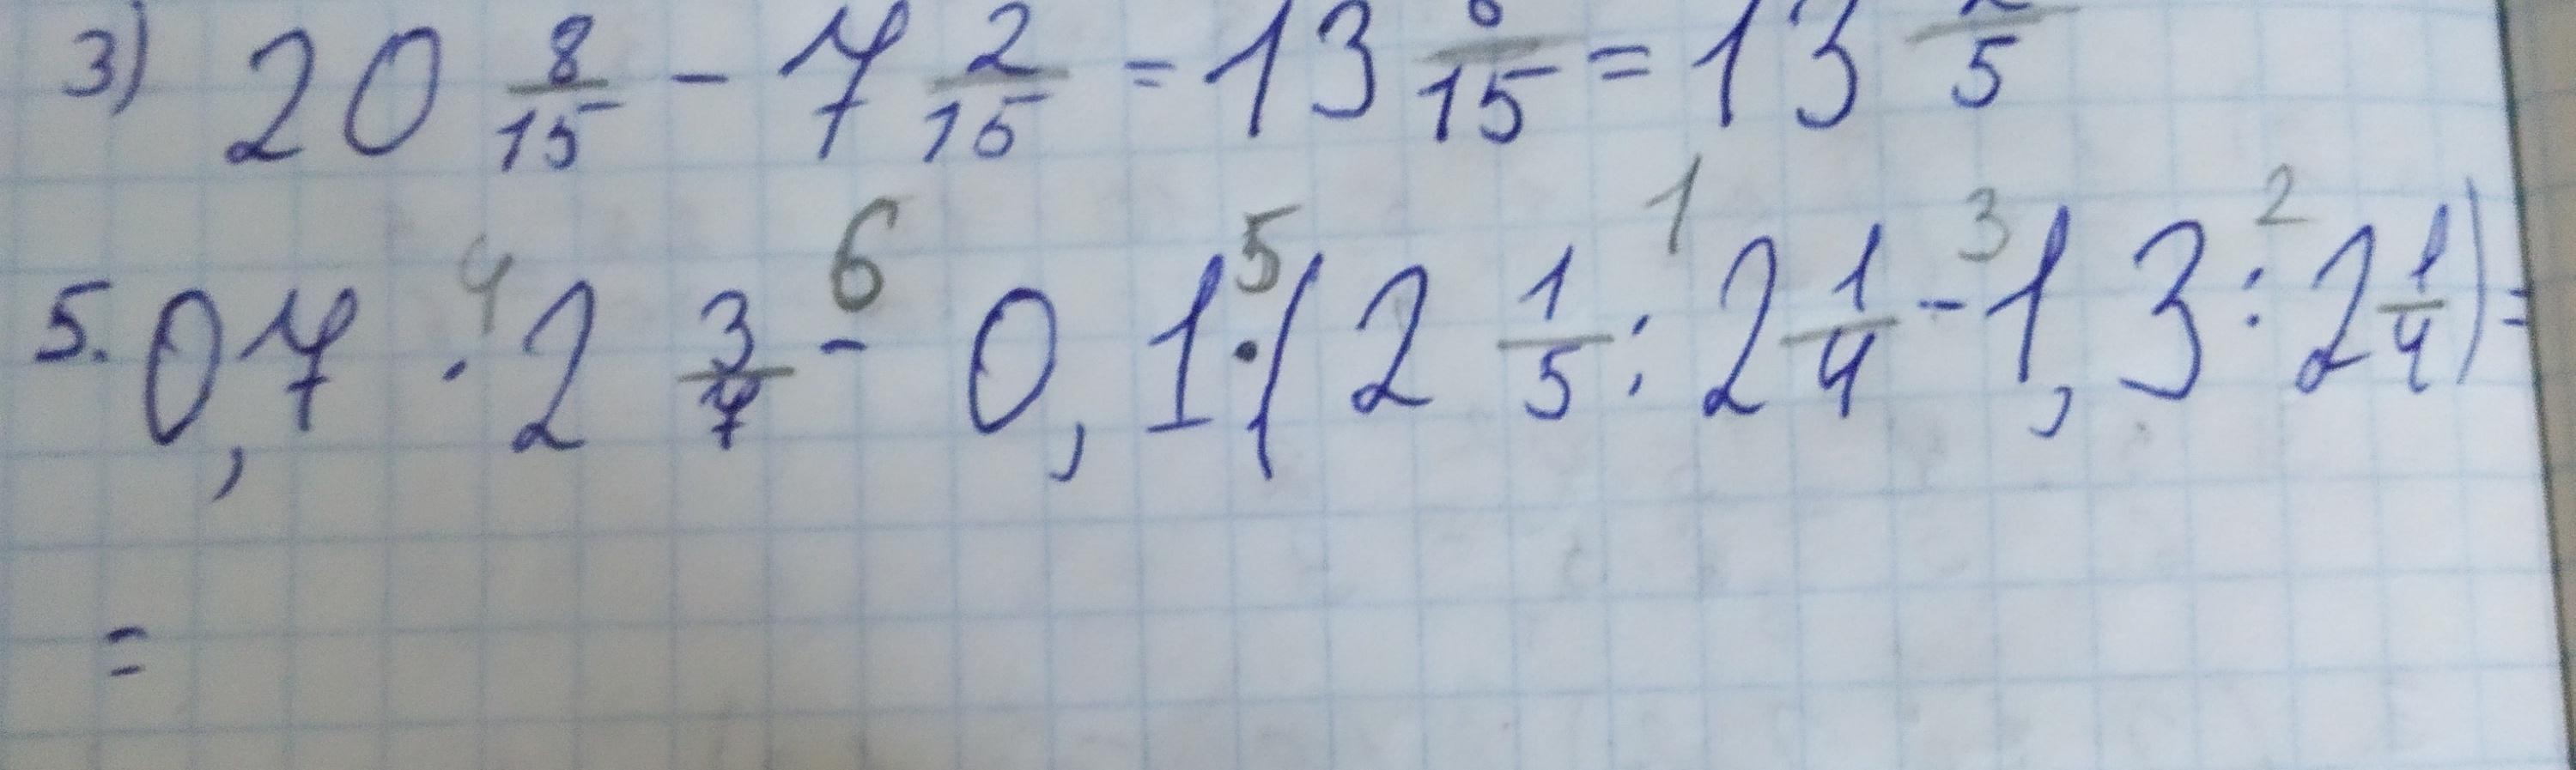 3) 20 8/15 - 7 2/15 = 13 6/15 = 13 2/5
4 6 5 1 3 2
5. 0,7 · 2 3/7 - 0,1 · (2 1/5 : 2 1/4 - 1,3 : 2 1/4) =
=